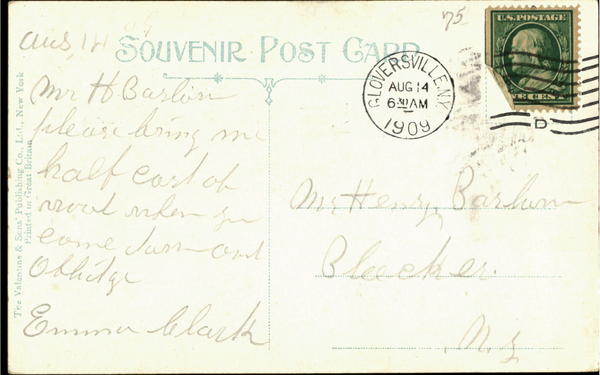 Aug 14 09
75
SOUVENIR POST CARD
U.S. POSTAGE
GLOVERSVILLE, N.Y.
AUG 14
6 30 AM
1909
D
Mr H Barlow
please bring me
half cord of
wood when you
come down and
Oblidge
Emma Clark
Mr Henry Barlow
Bleecker.
N.Y
The Valentine & Sons' Publishing Co., Ltd., New York
Printed in Great Britain